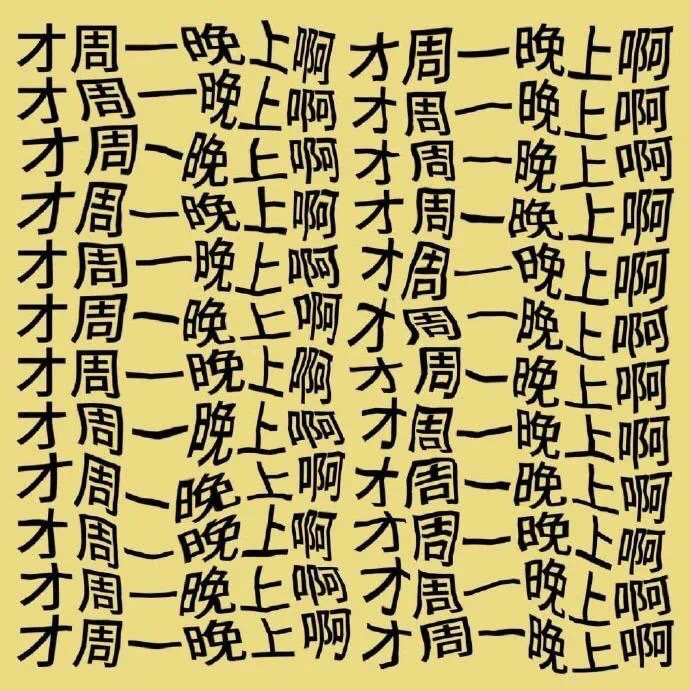 才周一晚上啊 才周一晚上啊
才周一晚上啊 才周一晚上啊
才周一晚上啊 才周一晚上啊
才周一晚上啊 才周一晚上啊
才周一晚上啊 才周一晚上啊
才周一晚上啊 才周一晚上啊
才周一晚上啊 才周一晚上啊
才周一晚上啊 才周一晚上啊
才周一晚上啊 才周一晚上啊
才周一晚上啊 才周一晚上啊
才周一晚上啊 才周一晚上啊
才周一晚上啊 才周一晚上啊